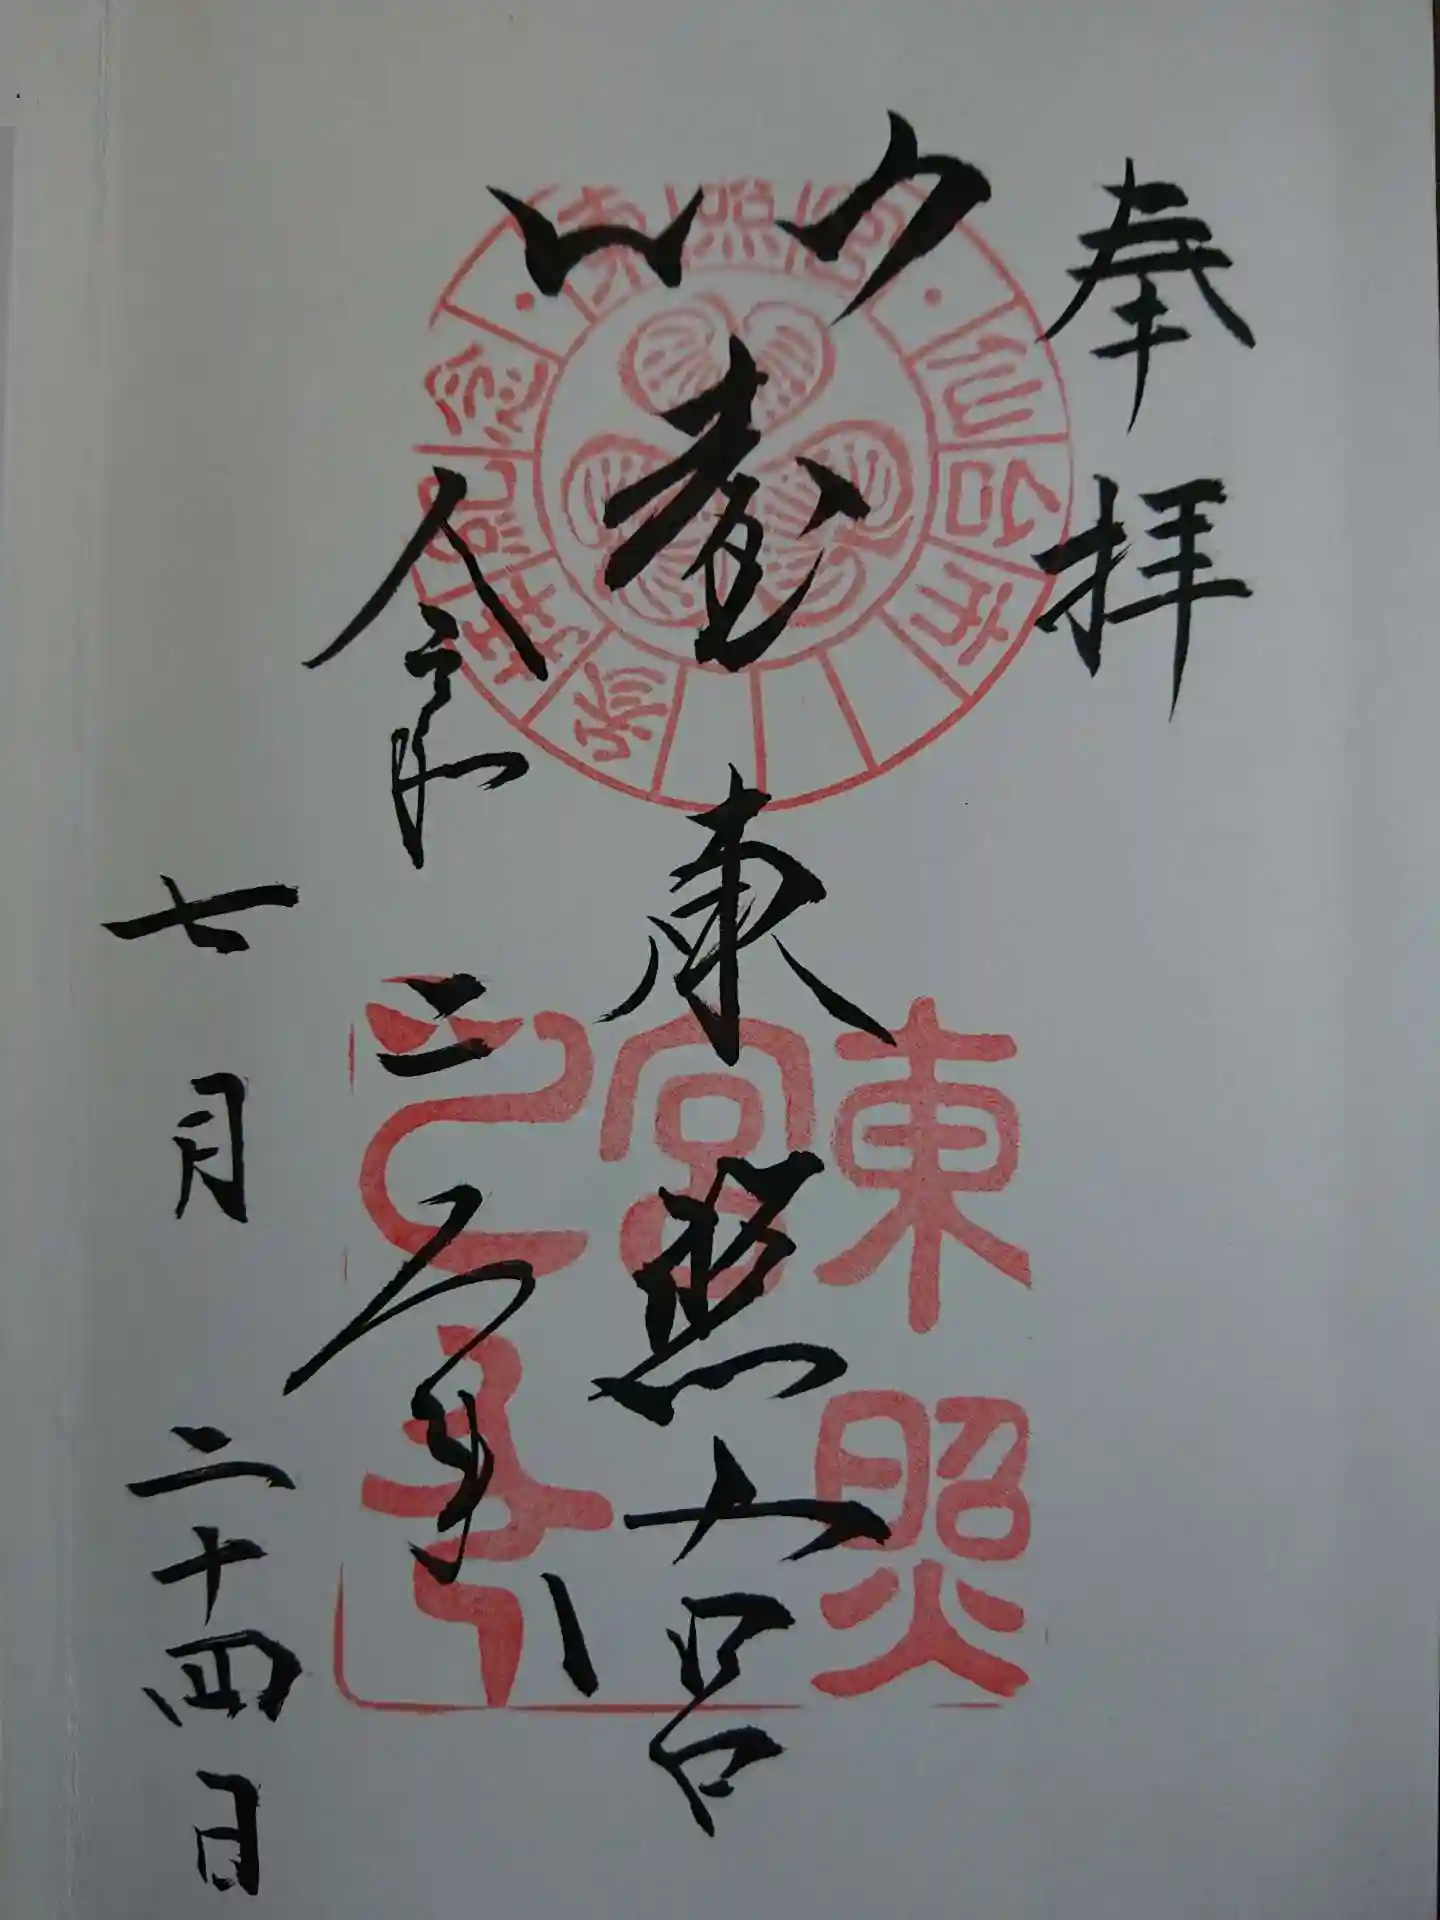 奉拝
仙臺東照宮
令和二年
七月二十四日
東照宮
仙台市
参拝記念
東照
宮